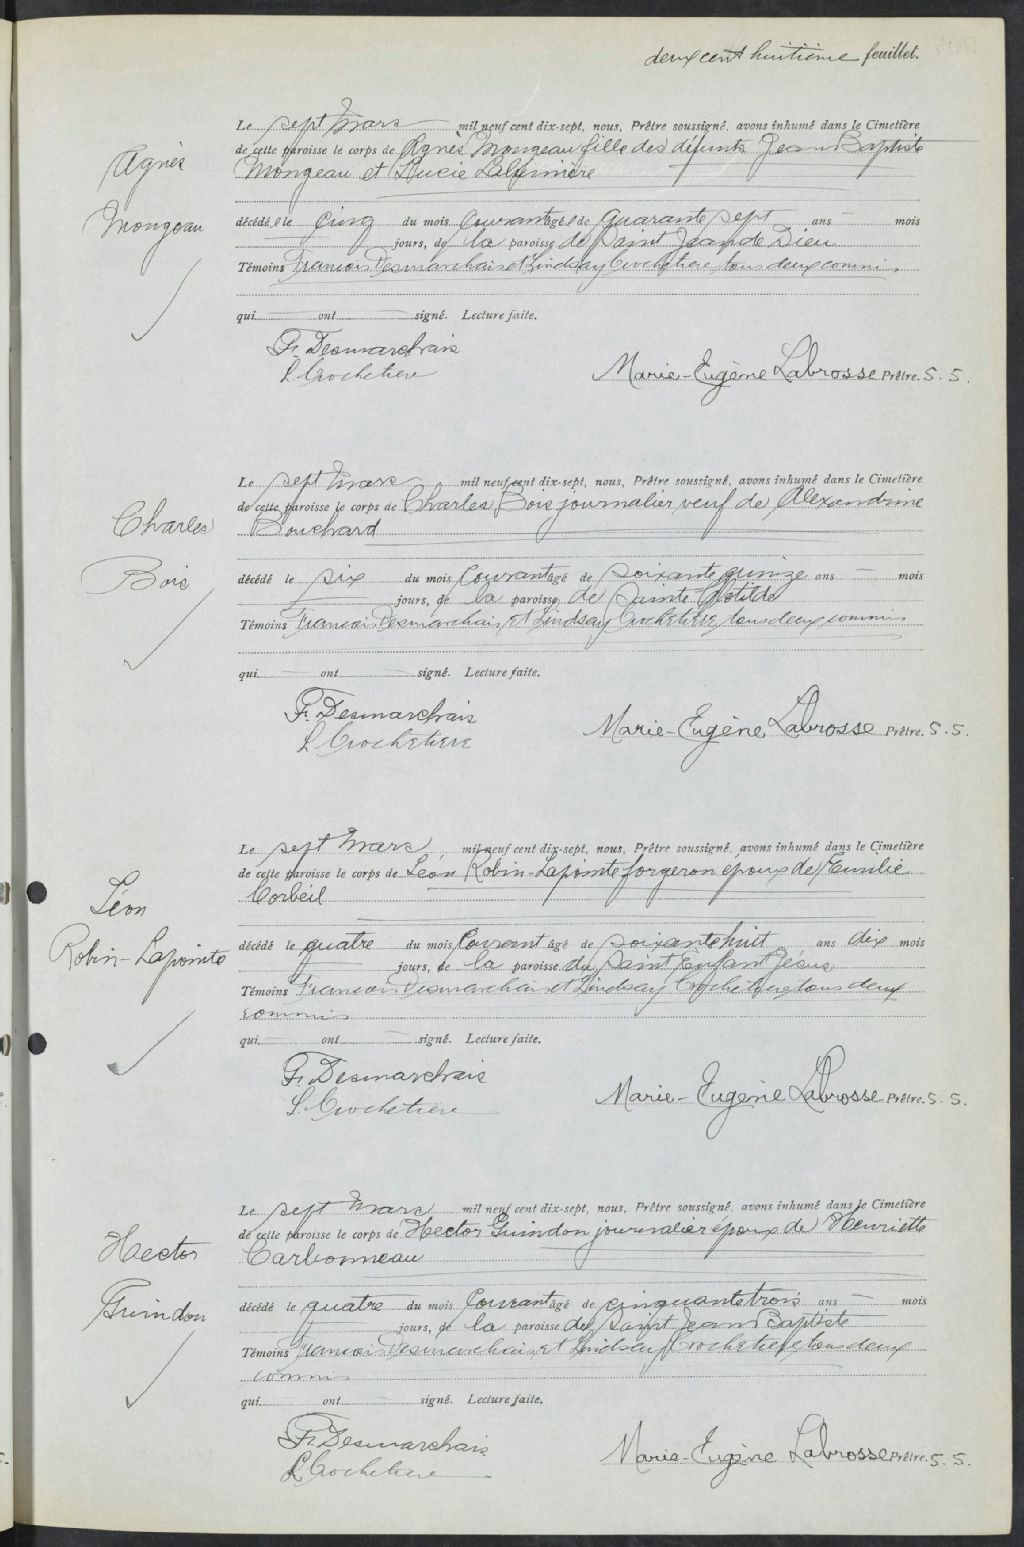 deux cent huitième feuillet.
Le sept Mars mil neuf cent dix-sept, nous, Prêtre soussigné, avons inhumé dans le Cimetière
de cette paroisse le corps de Agnès Mongeau fille des défunts Jean Baptiste
Agnès
Mongeau et Lucie
Mongeau
décédée le cinq du mois Courant agé de Quarante sept ans — mois
jours, de la paroisse de Saint Jean de Dieu
Témoins Francois Desmarchais et Lindsay Crochetiere, tous deux commis.
qui — ont — signé. Lecture faite.
Fr. Desmarchais
L Crochetiere
Marie-Eugène Labrosse Prêtre. S. S.
Le sept Mars mil neuf cent dix-sept, nous, Prêtre soussigné, avons inhumé dans le Cimetière
de cette paroisse le corps de Charles Bois journalier veuf de Alexandrine
Charles
Bouchard
Bois
décédé le six du mois Courant agé de soixante quinze ans — mois
jours, de la paroisse de Sainte Clotilde
Témoins Francois Desmarchais et Lindsay Crochetiere, tous deux commis
qui — ont — signé. Lecture faite.
Fr. Desmarchais
L Crochetiere
Marie-Eugène Labrosse Prêtre. S. S.
Le sept Mars mil neuf cent dix-sept, nous, Prêtre soussigné, avons inhumé dans le Cimetière
de cette paroisse le corps de Léon Robin-Lapointe forgeron époux de Emilie
Léon
Corbeil
Robin-Lapointe
décédé le quatre du mois Courant agé de soixante huit ans dix mois
jours, de la paroisse du Saint Enfant Jésus
Témoins Francois Desmarchais et Lindsay Crochetiere tous deux
commis
qui — ont — signé. Lecture faite.
Fr. Desmarchais
L Crochetiere
Marie-Eugène Labrosse Prêtre. S. S.
Le sept Mars mil neuf cent dix-sept, nous, Prêtre soussigné, avons inhumé dans le Cimetière
de cette paroisse le corps de Hector Guindon journalier époux de Henriette
Hector
Carbonneau
Guindon
décédé le quatre du mois Courant agé de cinquante trois ans — mois
jours, de la paroisse de Saint Jean Baptiste
Témoins Francois Desmarchais et Lindsay Crochetiere tous deux
commis
qui — ont — signé. Lecture faite.
Fr. Desmarchais
L Crochetiere
Marie-Eugène Labrosse Prêtre. S. S.